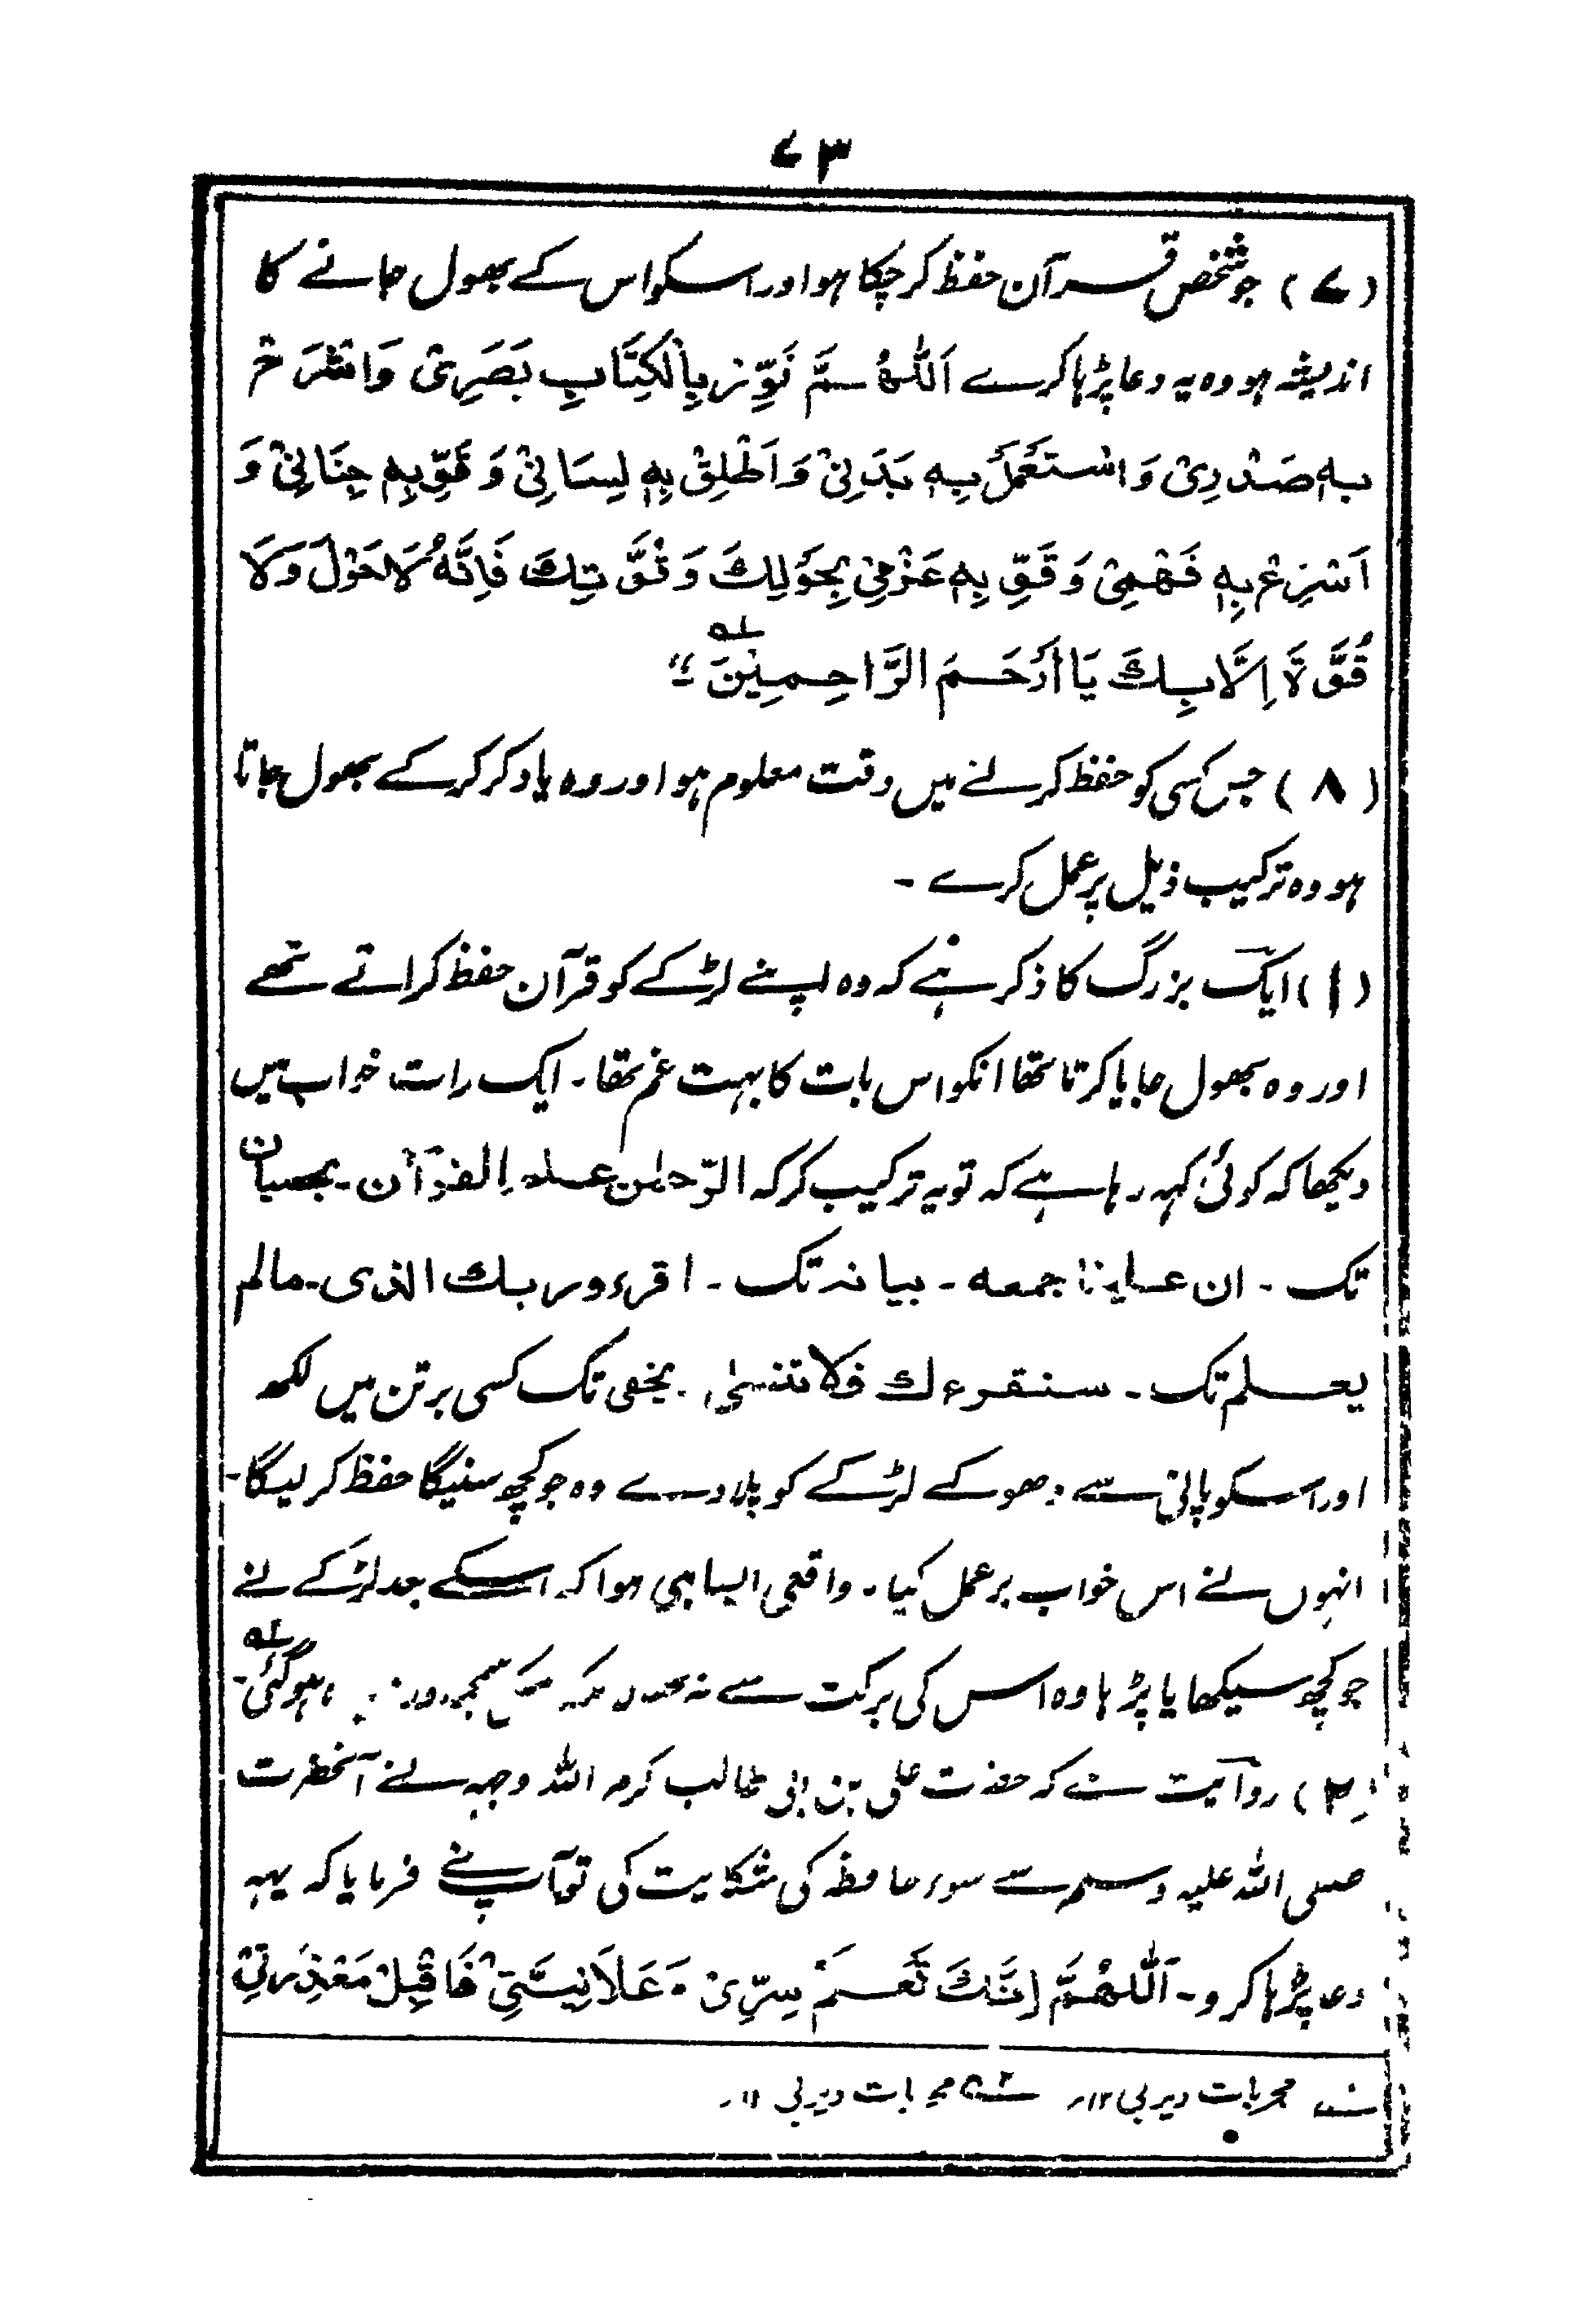 ۷۳
(۷) جو شخص قرآن حفظ کر چکا ہو اور اسکو اس کے بھول جانے کا
اندیشہ ہو وہ یہ دعا پڑہا کرے اَللّٰهُمَّ نَوِّرْ بِالْكِتَابِ بَصَرِیْ وَاشْرَحْ
بِهٖ صَدْرِیْ وَاسْتَعْمِلْ بِهٖ بَدَنِیْ وَاَطْلِقْ بِهٖ لِسَانِیْ وَقَوِّ بِهٖ جِنَانِیْ وَ
اَسْرِعْ بِهٖ فَهْمِیْ وَقَوِّ بِهٖ عَزْمِیْ بِحَوْلِكَ وَقُوَّتِكَ فَاِنَّهٗ لَاحَوْلَ وَلَا
قُوَّةَ اِلَّا بِكَ يَا اَرْحَمَ الرَّاحِمِيْنَ ؎۱ ۔“
(۸) جس کسی کو حفظ کرنے میں دقت معلوم ہو اور وہ یاد کر کر کے بھول جاتا
ہو وہ ترکیب ذیل پر عمل کرے ۔
(۱) ایک بزرگ کا ذکر ہے کہ وہ اپنے لڑکے کو قرآن حفظ کراتے تھے
اور وہ بھول جایا کرتا تھا انکو اس بات کا بہت غم تھا ۔ ایک رات خواب میں
دیکھا کہ کوئی کہہ رہا ہے کہ تو یہ ترکیب کر کہ الرّحمٰن علم القرآن ۔ بحسبان
تک ۔ ان علینا جمعه ۔ بیانہ تک ۔ اقرء وربك الذی ۔ مالم
یعلم تک ۔ سنقرءك فلا تنسیٰ ۔ یخفی تک کسی برتن میں لکھ
اور اسکو پانی سے دھو کے لڑکے کو پلا دے وہ جو کچھ سنیگا حفظ کر لیگا ۔
انہوں نے اس خواب پر عمل کیا ۔ واقعی ایسا ہی ہوا کہ اسکے بعد لڑکے نے
جو کچھ سیکھا یا پڑہا وہ اس کی برکت سے نہ بھولا ہوگئی ۔
(۲) روایت ہے کہ حضرت علی بن ابی طالب کرم اللہ وجہہ نے آنحضرت
صلی اللہ علیہ وسلم سے سوء حافظہ کی شکایت کی تو آپ نے فرمایا کہ یہہ
دعا پڑہا کرو ۔ اَللّٰهُمَّ اِنَّكَ تَعْلَمُ سِرِّیْ وَعَلَانِیَتِیْ فَاقْبِلْ مَعْذِرَتِیْ
مجربات دیربی ۱۲ ؎۲ مجربات دیربی ۱۱